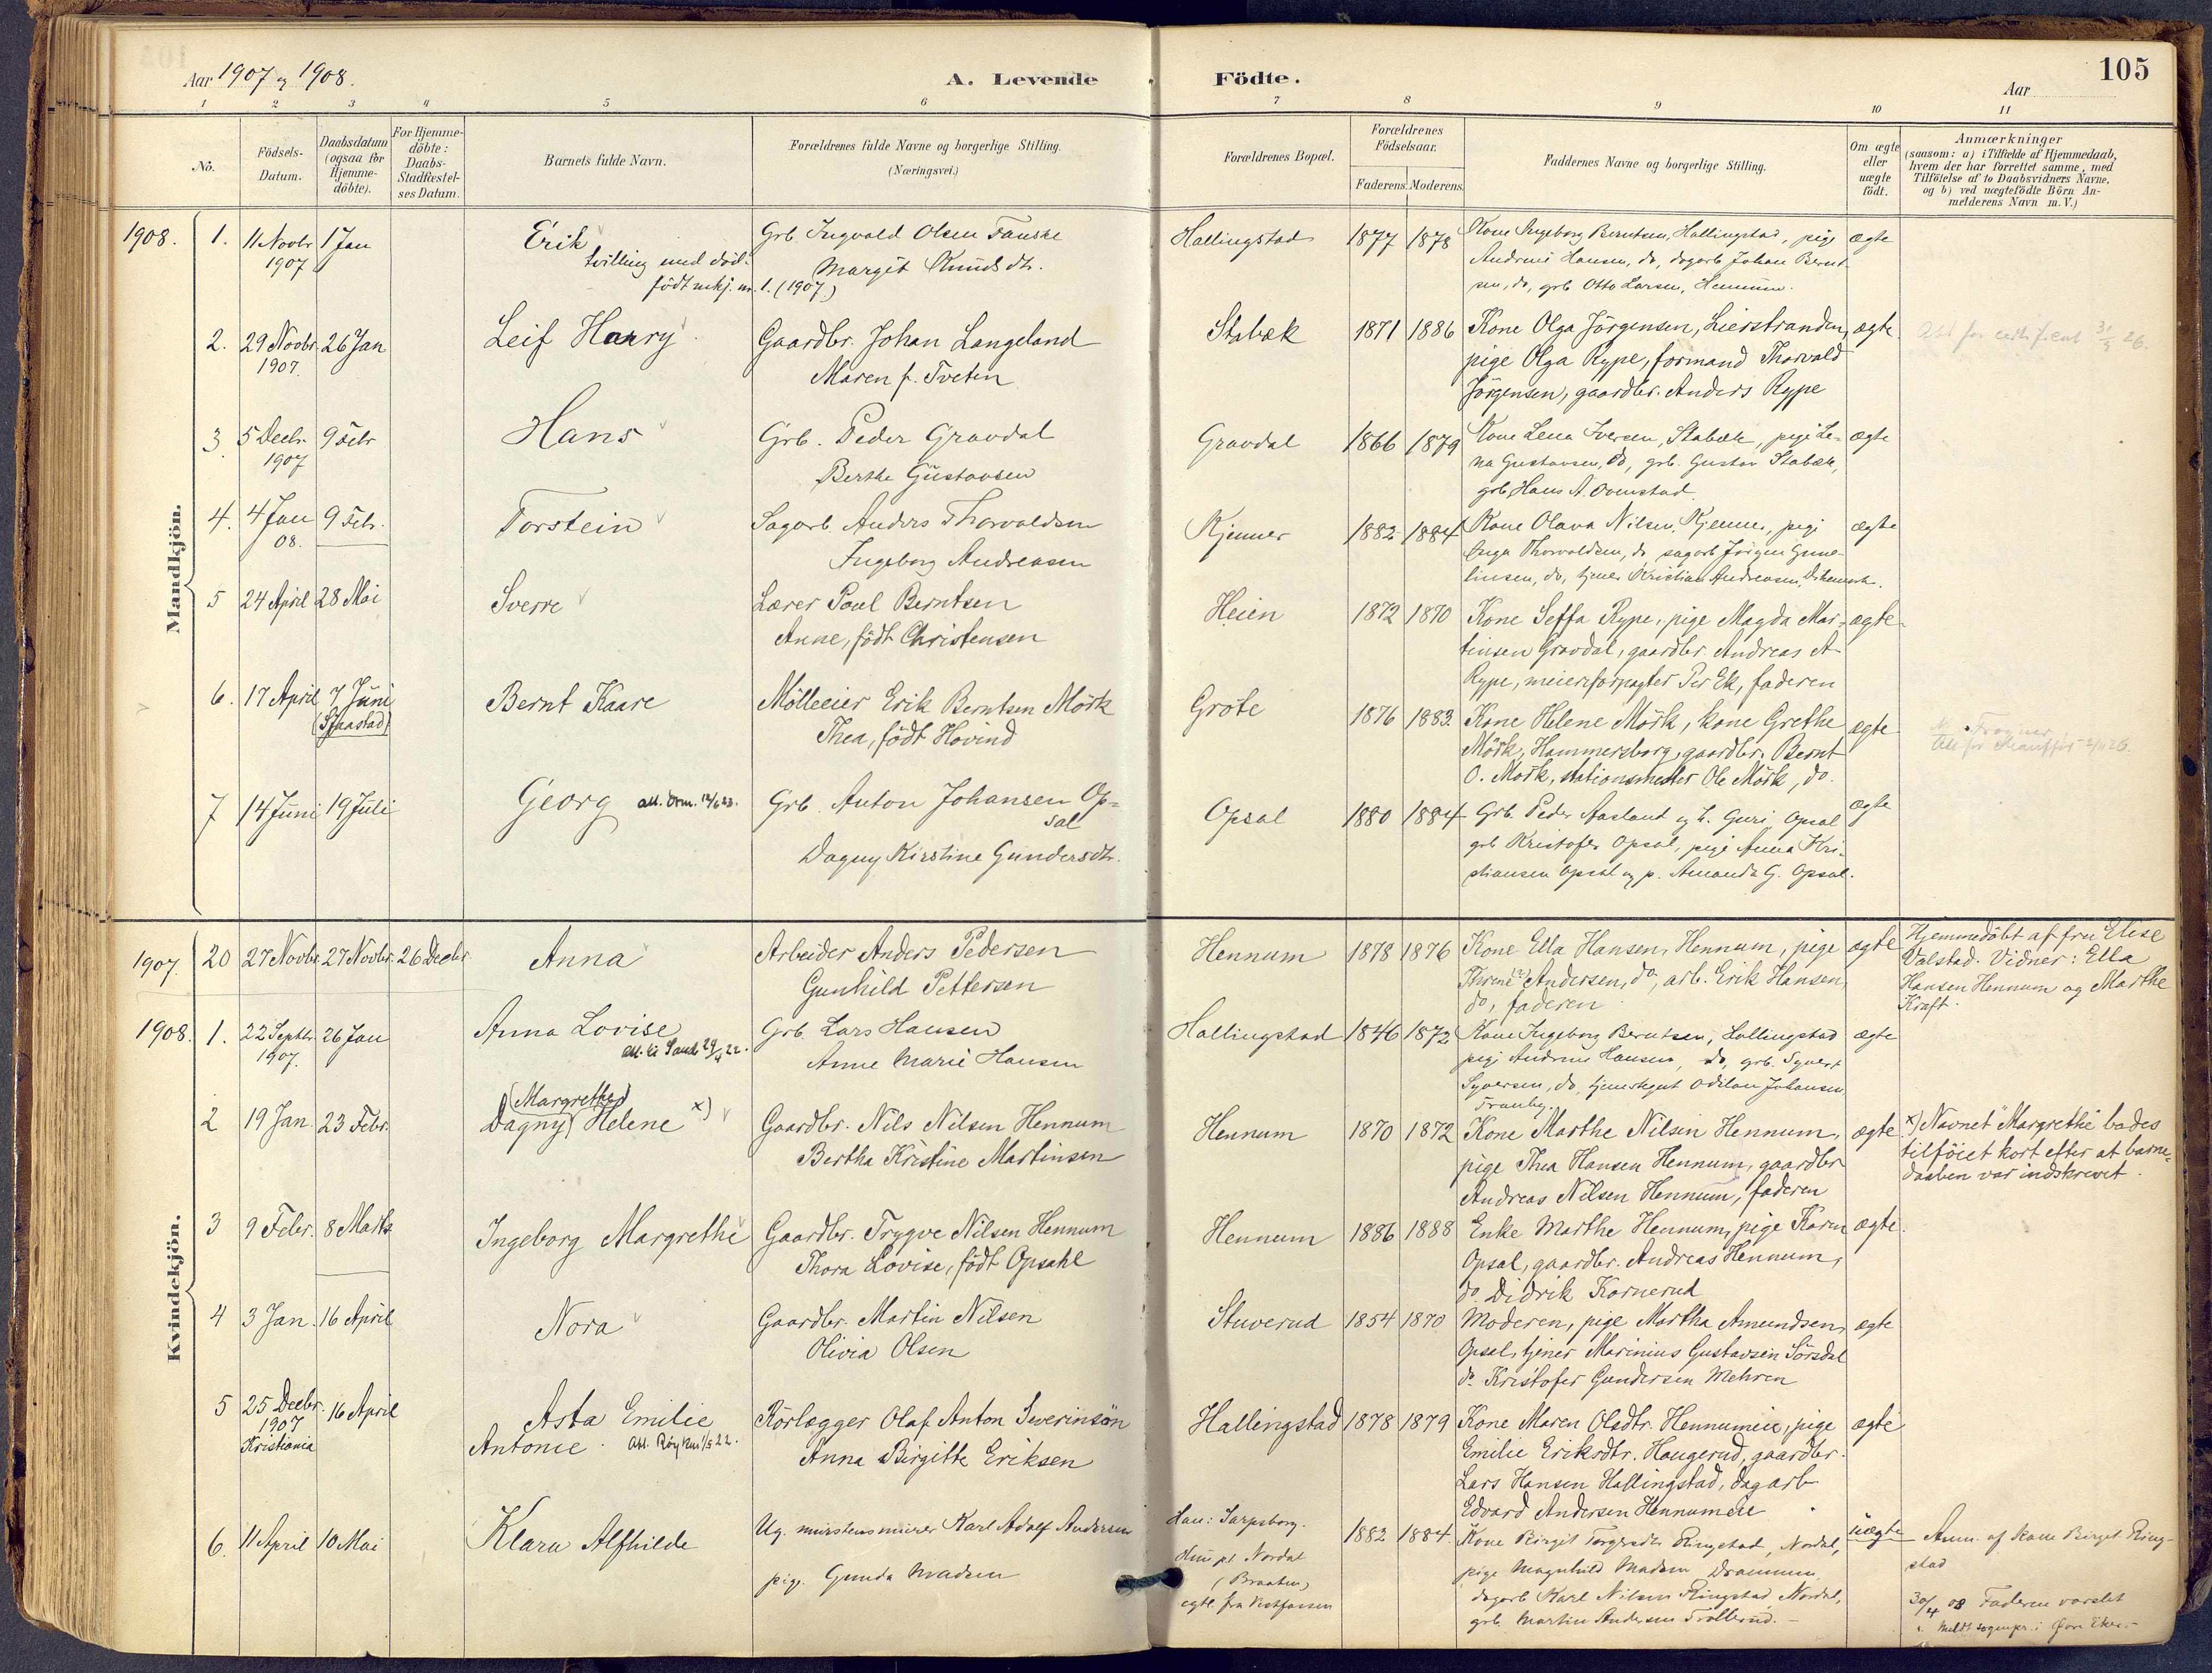 105
Aar 1907 og 1908.
A. Levende Födte.
Aar
1 2 3 4 5 6 7 8 9 10 11
No.
Födsels-Datum.
Daabsdatum (ogsaa for Hjemmedöbte).
For Hjemmedöbte: Daabs-Stadfæstelses Datum.
Barnets fulde Navn.
Forældrenes fulde Navne og borgerlige Stilling.
(Næringsvei.)
Forældrenes Bopæl.
Forældrenes Födselsaar.
Faderens. Moderens.
Faddernes Navne og borgerlige Stilling.
Om ægte eller uægte födt.
Anmærkninger
(saasom: a) i Tilfælde af Hjemmedaab,
hvem der har forrettet samme, med
Tilföielse af to Daabsvidners Navne,
og b) ved uægtefödte Börn Anmelderens Navn m. V.)
Mandkjön.
1908. 1. 11 Novbr 1907 1 Jan
Erik
tvilling med död-
født mkj. nr. 1. (1907)
Grb. Ingvald Olsen Fauske
Margit Knudsdtr.
Hallingstad 1877 1878
Kone Ingeborg Berntsen, Hallingstad, pige
Andrine Hansen, do, dagarb Johan Bernt-
sen, do, grb Otto Larsen, Hennum.
ægte
2. 29 Novbr. 1907. 26 Jan
Leif Harry
Gaardbr. Johan Langeland
Maren f. Tveten
Stabæk 1871 1886
Kone Olga Jörgensen, Lierstranden,
pige Olga Rype, formand Thorvald
Jörgensen, gaardbr. Anders Rype
ægte.
3. 5 Decbr. 1907 9 Febr
Hans
Grb. Peder Gravdal
Berthe Gustavsen
Gravdal 1866 1879
Kone Lena Iversen, Stabæk, pige Le-
na Gustavsen, do, grb. Gustav Stabæk,
grb. Hans A. Ovenstad.
ægte
4. 4 Jan 08. 9 Febr.
Torstein
Sagarb. Anders Thorvaldsen
Ingeborg Andreasen
Kjenner 1882 1884
Kone Olava Nilsen, Kjenner, pige
Inga Thorvaldsen, do sagarb Jörgen
do, tjener Kristian Andreasen,
ægte
5 24 April 28 Mai
Sverre
Lærer Paul Berntsen
Anne, födt Christensen
Heien 1872 1870
Kone Seffa Rype, pige Magda Mar-
tinsen Gravdal, gaardbr. Andreas A
Rype, meieriforpagter Per Ek, faderen
ægte
6. 17 April 7 Juni
Bernt Kaare
Mölleeier Erik Berntsen Mörk
Thea, födt Hovind
Gröte 1876 1883.
Kone Helene Mörk, kone Grethe
Mörk, Hammersborg, gaardbr. Bernt
O. Mörk, stationsmester Ole Mörk, do.
ægte
7 14 Juni 19 Juli
Georg
Grb. Anton Johansen Op-
sal
Dagny Kirstine Gundersdtr.
Opsal 1880 1884
Grb. Peder Aasland og h. Guri Opsal
grb Kristofer Opsal, pige Anna Kri-
stiansen Opsal og p. Amanda G. Opsal.
ægte
Kvindekjön.
1907. 20 27 Novbr. 27 Novbr. 26 Decbr
Anna
Arbeider Anders Pedersen
Gunhild Pettersen
Hennum 1878 1876
Kone Ella Hansen, Hennum, pige
Andersen, do, arb. Erik Hansen,
do, faderen
ægte
Hjemmedöbt af fru Elise
Valstad. Vidner: Ella
Hansen Hennum og Marthe
Kraft.
1908. 1. 22 Septbr. 1907. 26 Jan
Anna Lovise
Grb. Lars Hansen
Anne Marie Hansen
Hallingstad 1846 1872
Kone Ingeborg Berntsen, Hallingstad
pige Andrine Hansen, do, grb. Syvert
Syversen, do, tjenestegut Odilon Johansen
Tranby.
ægte
2 19 Jan. 23 Febr.
(Margrethe)
Dagny Helene x)
Gaardbr. Nils Nilsen Hennum
Bertha Kristine Martinsen
Hennum 1870 1872
Kone Marthe Nilsen Hennum,
pige Thea Hansen Hennum, gaardbr
Andreas Nilsen Hennum, faderen
ægte
x) Navnet "Margrethe" bades
tilföiet kort efter at barne-
daaben var indskrevet.
3 9 Febr. 8 Marts
Ingeborg Margrethe
Gaardbr. Trygve Nilsen Hennum
Thora Lovise, födt Opsahl
Hennum 1886 1888
Enke Marthe Hennum, pige Karen
Opsal, gaardbr. Andreas Hennum,
do Didrik Kornerud
ægte.
4 3 Jan. 16 April
Nora
Gaardbr. Martin Nilsen
Olivia Olsen
Stuverud 1854 1870
Moderen, pige Martha Amundsen,
Opsal, tjener Marinius Gustavsen Sörsdal
do. Kristofer Gundersen Mehren
ægte
5 25 Decbr. 1907 Kristiania 16 April
Asta Emilie
Antonie.
Rörlægger Olaf Anton Severinsön
Anna Birgitte Eriksen
Hallingstad 1878 1879
Kone Maren Olsdtr. Hennumeie, pige
Emilie Eriksdtr. Haugerud, gaardbr.
Lars Hansen Hallingstad, dagarb
Edvard Andersen Hennumeie
ægte
6. 11 April 10 Mai
Klara Alfhilde
Ug. murstensmurer Karl Adolf Andersen
pige Gunda Madsen
Han: Sarpsborg.
Hun pt Nordal
(Braaten)
1882 1884.
Kone Birgit Ringstad, Nordal,
pige Magnhild Madsen Drammen,
dagarb Karl Nilsen Ringstad, Nordal,
grb. Martin Andersen Trollerud.
uægte
Anm. af kone Birgit Ring-
stad
30/4 08 Faderen varslet